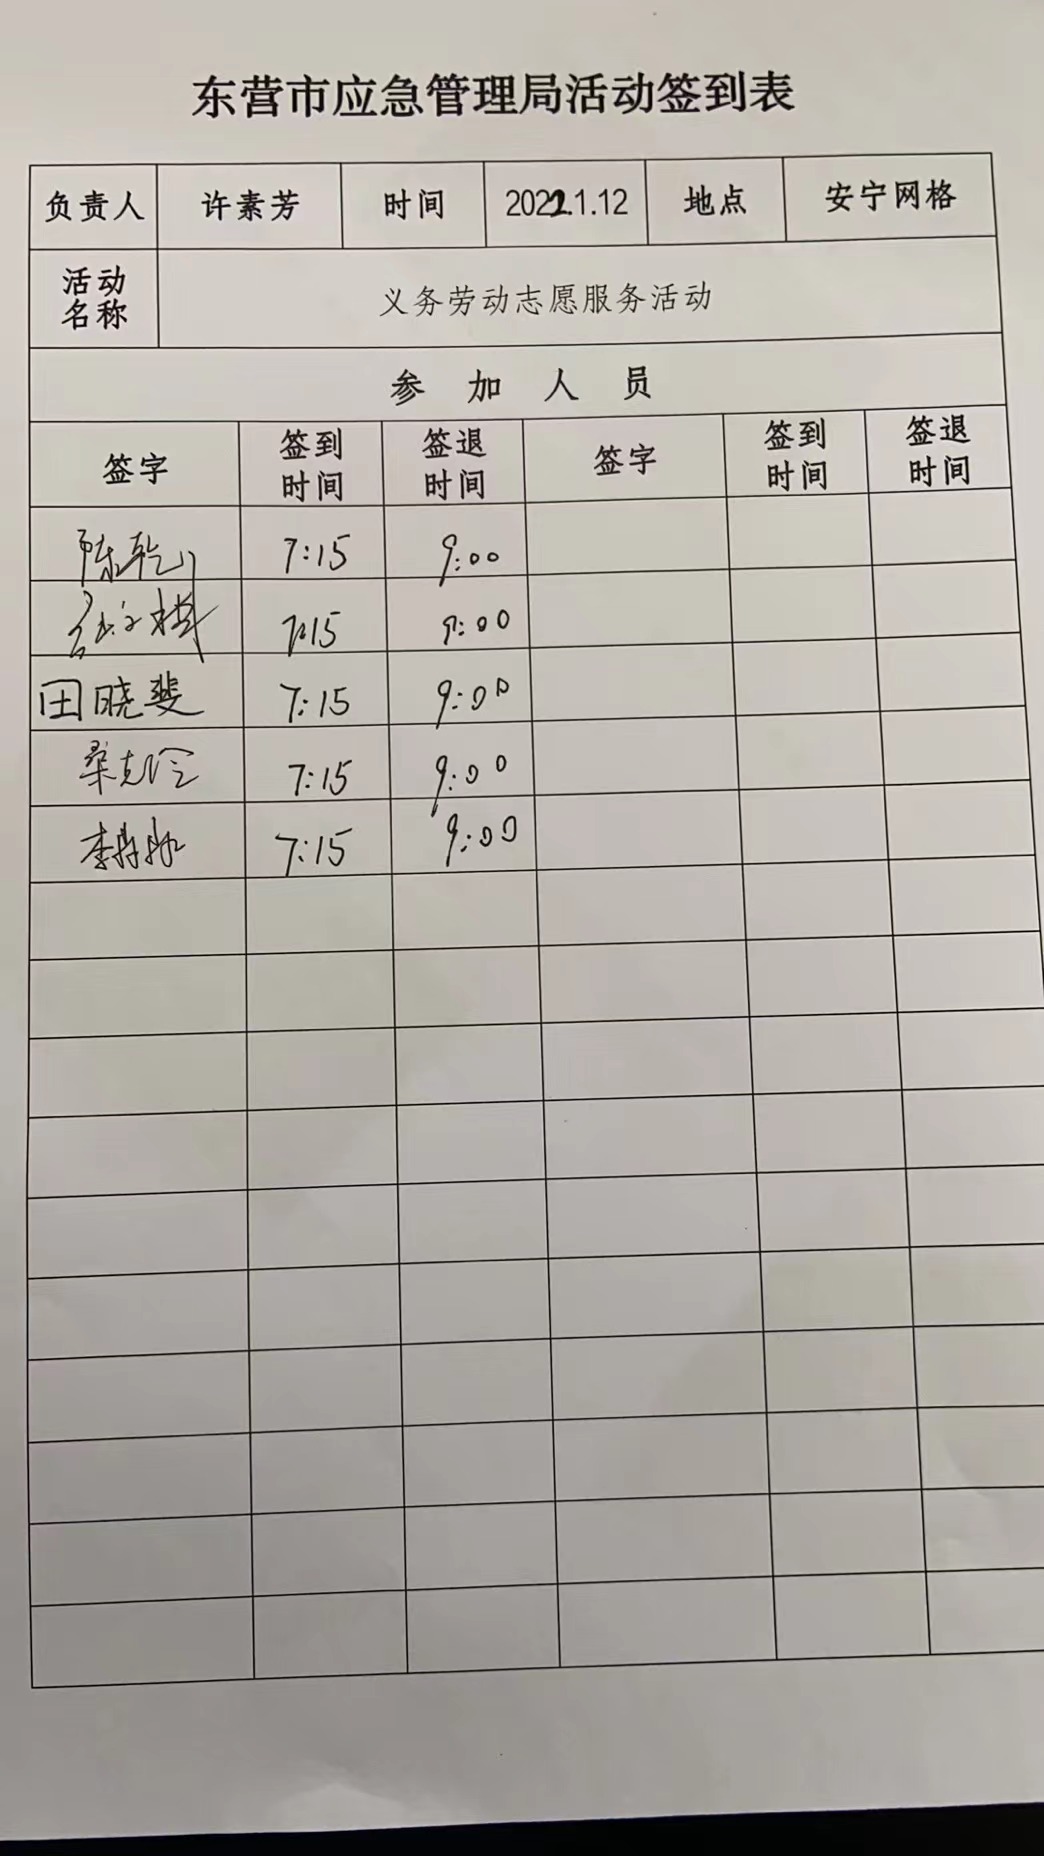 东营市应急管理局活动签到表
负责人 许素芳 时间 2022.1.12 地点 安宁网格
活动名称 义务劳动志愿服务活动
参加人员
签字 签到时间 签退时间 签字 签到时间 签退时间
陈乾 7:15 9:00
7:15 9:00
田晓斐 7:15 9:00
7:15 9:00
李 7:15 9:00